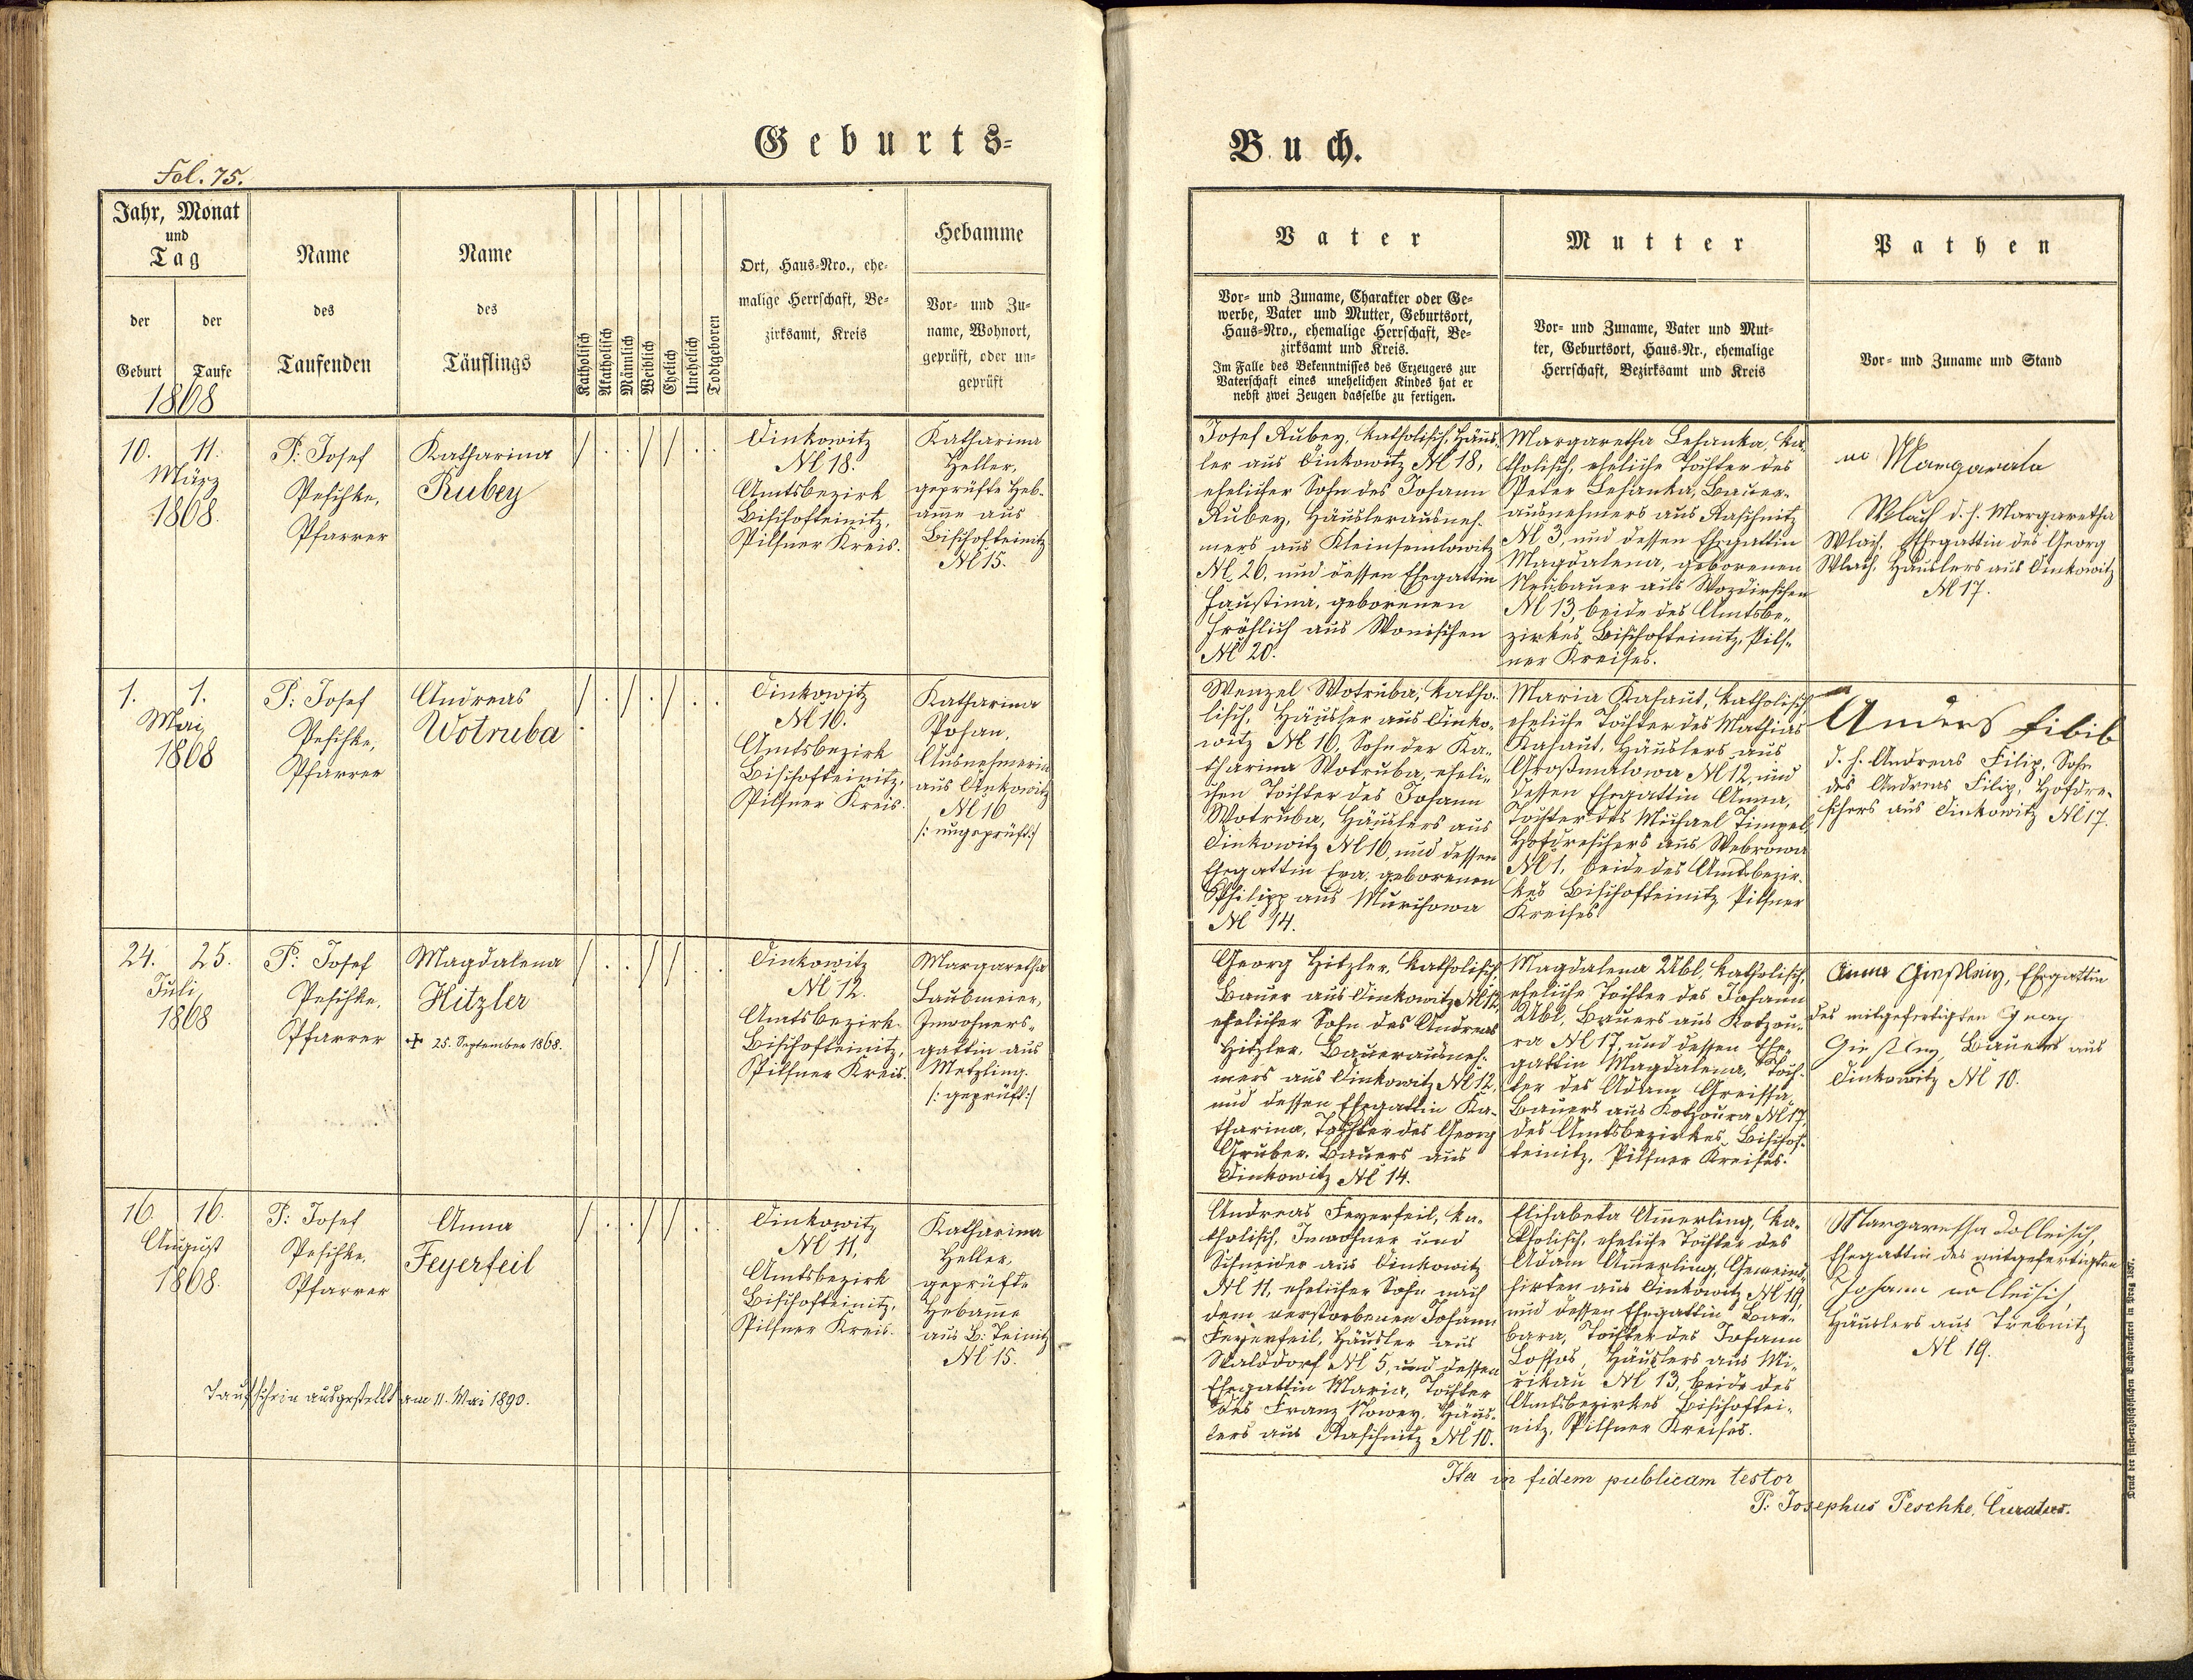 Geburts=
Buch.
Fol. 75.
Jahr, Monat
und
Tag
der
Geburt
der
Taufe
1868
Name
des
Taufenden
Name
des
Täuflings
Katholisch
Akatholisch
Männlich
Weiblich
Ehelich
Unehelich
Todtgeboren
Ort, Haus=Nro., ehe=
malige Herrschaft, Be=
zirksamt, Kreis
Hebamme
Vor= und Zu=
name, Wohnort,
geprüft, oder un=
geprüft
Vater
Vor= und Zuname, Charakter oder Ge=
werbe, Vater und Mutter, Geburtsort,
Haus=Nro., ehemalige Herrschaft, Be=
zirksamt und Kreis.
Im Falle des Bekenntnisses des Erzeugers zur
Vaterschaft eines unehelichen Kindes hat er
nebst zwei Zeugen dasselbe zu fertigen.
Mutter
Vor= und Zuname, Vater und Mut=
ter, Geburtsort, Haus=Nr., ehemalige
Herrschaft, Bezirksamt und Kreis
Pathen
Vor= und Zuname und Stand
10. 11.
März
1868.
P. Josef
Peschke,
Pfarrer
Katharina
Rubey
Dinkowitz
N 18.
Amtsbezirk
Bischofteinitz,
Pilsner Kreis.
Katharina
Heller,
geprüfte Heb-
amme aus
Bischofteinitz
N 15.
Josef Rubey, katholisch, Häus-
ler aus Dinkowitz N 18,
ehelicher Sohn des Johann
Rubey, Häuslerausneh-
mers aus Kleinsemlowitz
N 26, und dessen Ehegattin
Faustina, geborenen
Fröhlich aus Wonischen
N 20.
Margaretha Lehanka, ka-
tholisch, eheliche Tochter des
Peter Lehanka, Bauer-
ausnehmers aus Raschnitz
N 3, und dessen Ehegattin
Magdalena, geborenen
Neubauer aus Wozdirschen
N 13, beide des Amtsbe-
zirkes Bischofteinitz, Pils-
ner Kreises.
Margarata
Wlach d. h. Margaretha
Wlach, Ehegattin des Georg
Wlach, Häuslers aus Dinkowitz
N 17.
1. 1.
Mai
1868
P: Josef
Peschke,
Pfarrer
Andreas
Wotruba
Dinkowitz
N 16.
Amtsbezirk
Bischofteinitz,
Pilsner Kreis.
Katharina
Pohan,
Ausnehmerin
aus Dinkowitz
N 16
/: ungeprüft :/
Wenzel Wotruba, katho-
lisch, Häusler aus Dinko-
witz N 16, Sohn der Ka-
tharina Wotruba, eheli-
chen Tochter des Johann
Wotruba, Häuslers aus
Dinkowitz N 16, und dessen
Ehegattin Eva, geborenen
Philipp aus Murchowa
N 14.
Maria Kahaut, katholisch,
eheliche Tochter des Mathias
Kahaut, Häuslers aus
Großmalowa N 12, und
dessen Ehegattin Anna,
Tochter des Michael Timpel,
Hofdreschers aus Webrowa
N 1, beide des Amtsbezir-
kes Bischofteinitz Pilsner
Kreises
Anders Fibib
d. h. Andreas Filip, Sohn
des Andreas Filip, Hofdre-
schers aus Dinkowitz N 17.
24. 25.
Juli
1868
P: Josef
Peschke,
Pfarrer
Magdalena
Hitzler
✠ 25. September 1868.
Dinkowitz
N 12.
Amtsbezirk
Bischofteinitz,
Pilsner Kreis.
Margaretha
Laubmeier,
Inwohners-
gattin aus
Metzling.
/: geprüft :/
Georg Hitzler, katholisch,
Bauer aus Dinkowitz N 12,
ehelicher Sohn des Andreas
Hitzler, Bauerausneh-
mers aus Dinkowitz N 12,
und dessen Ehegattin Ka-
tharina, Tochter des Georg
Gruber, Bauers aus
Dinkowitz N 14.
Magdalena Übl, katholisch,
eheliche Tochter des Johann
Übl, Bauers aus Kotzou-
ra N 17, und dessen Ehe-
gattin Magdalena, Toch-
ter des Adam Greissa,
Bauers aus Kotzoura N 17
des Amtsbezirkes Bischof-
teinitz, Pilsner Kreises.
Anna Ehegattin
des mitgefertigten
Bauers aus
Dinkowitz N 10.
16. 16.
August
1868.
P: Josef
Peschke,
Pfarrer
Anna
Feyerfeil
Dinkowitz
N 11,
Amtsbezirk
Bischofteinitz,
Pilsner Kreis.
Katharina
Heller,
geprüfte
Hebamme
aus B: Teinitz
N 15.
Andreas Feyerfeil, ka-
tholisch, Inwohner und
Schneider aus Dinkowitz
N 11, ehelicher Sohn nach
dem verstorbenen Johann
Feyerfeil, Häusler aus
Walddorf N 5, und dessen
Ehegattin Maria, Tochter
des Franz Nowey, Häus-
lers aus Raschnitz N 10.
Elisabeta Amerling, ka-
tholisch, eheliche Tochter des
Adam Amerling, Gemeind-
hirten aus Dinkowitz N 19,
und dessen Ehegattin Bar-
bara, Tochter des Johann
Häuslers aus Mi-
rikau N 13, beide des
Amtsbezirkes Bischoftei-
nitz, Pilsner Kreises.
Margaretha Dolleisch,
Ehegattin des mitgefertigten
Johann
Häuslers aus Trebnitz
N 19.
Taufschein ausgestellt am 11. Mai 1890.
Ita in fidem publicam testor
P: Josephus Peschke, Curatus.
Druck der fürst=erzbischöflichen Buchdruckerei in Prag 1857.